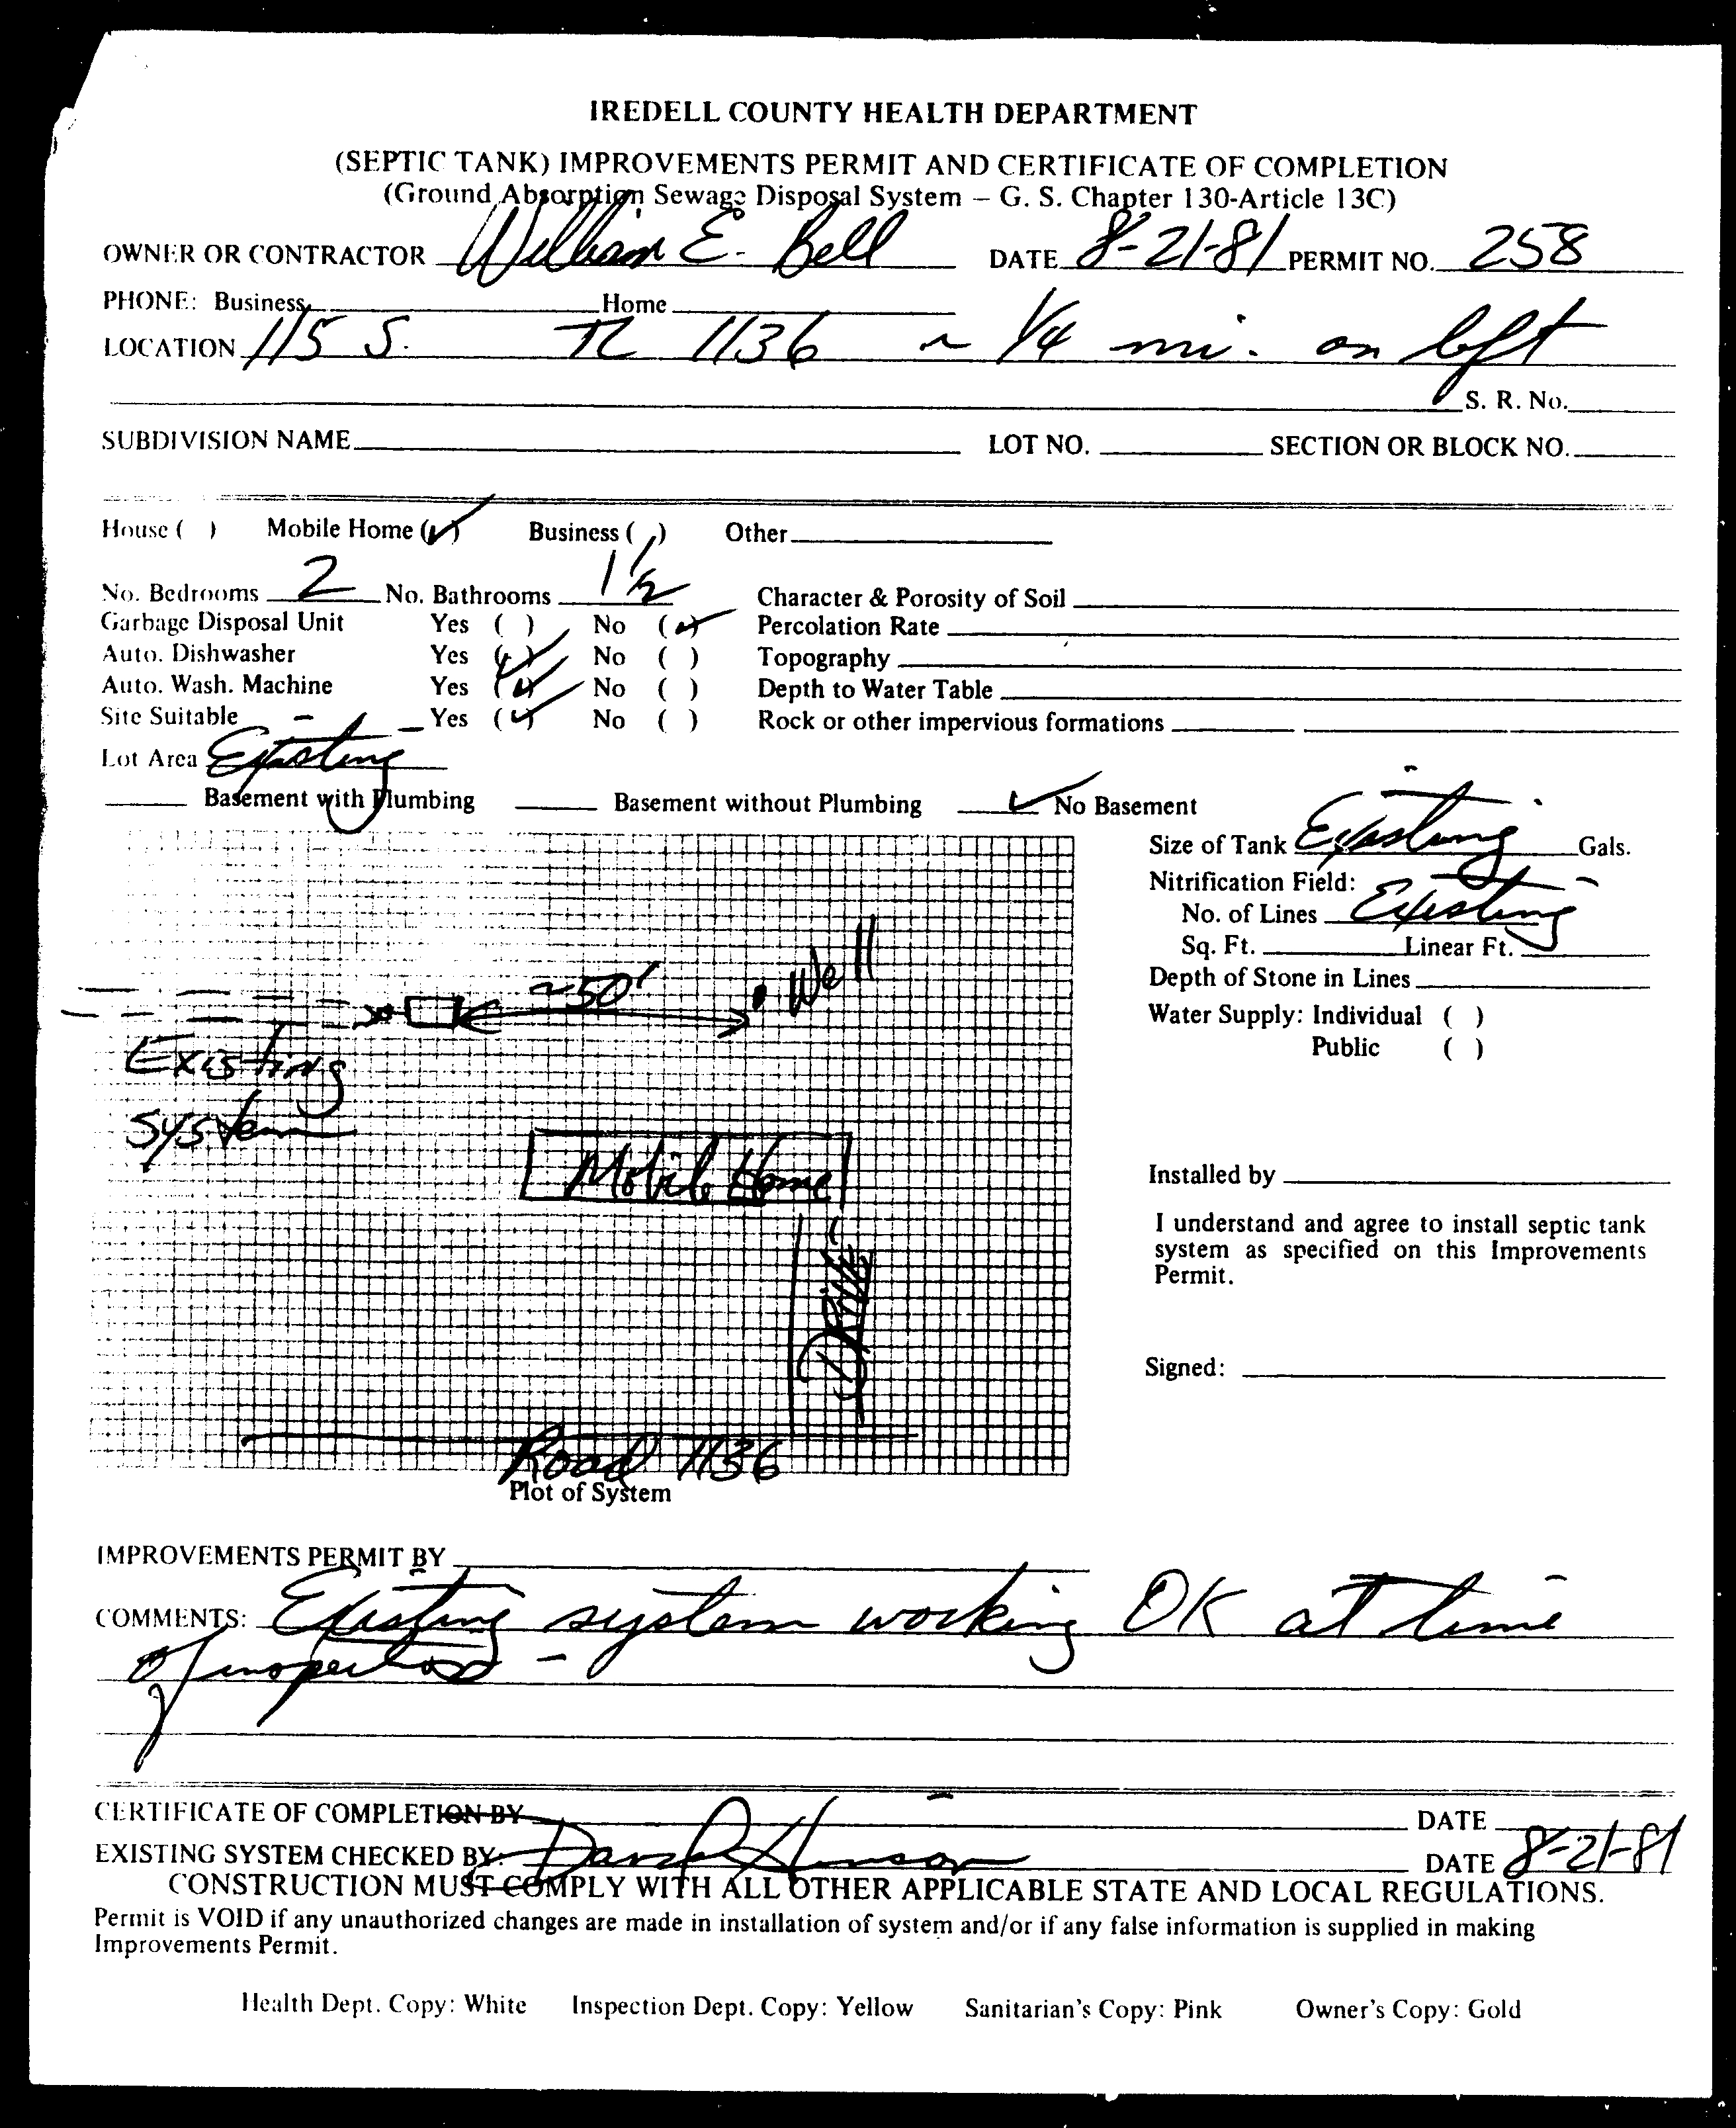 IREDELL COUNTY HEALTH DEPARTMENT
(SEPTIC TANK) IMPROVEMENTS PERMIT AND CERTIFICATE OF COMPLETION
(Ground Absorption Sewage Disposal System – G. S. Chapter 130-Article 13C)
OWNER OR CONTRACTOR William E. Bell DATE 8-21-81 PERMIT NO. 258
PHONE: Business Home
LOCATION 115 S. TL 1136 ~ 1/4 mi. on left
S. R. No.
SUBDIVISION NAME LOT NO. SECTION OR BLOCK NO.
House ( ) Mobile Home (✓) Business ( ) Other
No. Bedrooms 2 No. Bathrooms 1 1/2 Character & Porosity of Soil
Garbage Disposal Unit Yes ( ) No (✓) Percolation Rate
Auto. Dishwasher Yes (✓) No ( ) Topography
Auto. Wash. Machine Yes (✓) No ( ) Depth to Water Table
Site Suitable Yes (✓) No ( ) Rock or other impervious formations
Lot Area Existing
Basement with Plumbing Basement without Plumbing ✓ No Basement
Size of Tank Existing Gals.
Nitrification Field:
No. of Lines Existing
Sq. Ft. Linear Ft.
Depth of Stone in Lines
Water Supply: Individual ( )
Public ( )
~50' Well
Existing
System
Mobile Home
DRIVE
Road 1136
Plot of System
Installed by
I understand and agree to install septic tank
system as specified on this Improvements
Permit.
Signed:
IMPROVEMENTS PERMIT BY
COMMENTS: Existing system working OK at time
of inspection -
CERTIFICATE OF COMPLETION BY DATE
EXISTING SYSTEM CHECKED BY: David Hinson DATE 8-21-81
CONSTRUCTION MUST COMPLY WITH ALL OTHER APPLICABLE STATE AND LOCAL REGULATIONS.
Permit is VOID if any unauthorized changes are made in installation of system and/or if any false information is supplied in making
Improvements Permit.
Health Dept. Copy: White Inspection Dept. Copy: Yellow Sanitarian's Copy: Pink Owner's Copy: Gold